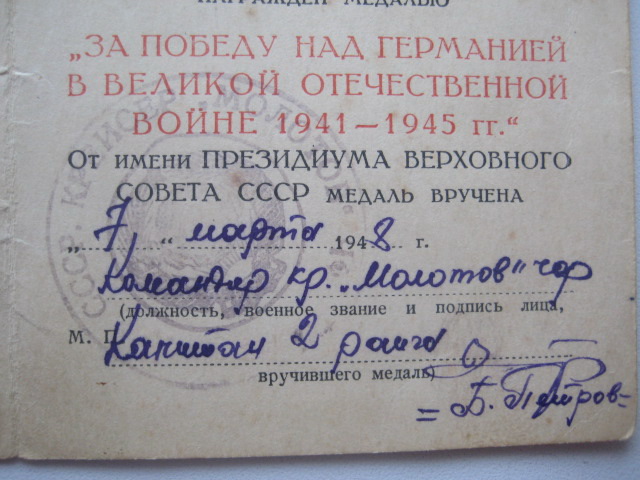 НАГРАЖДЕН МЕДАЛЬЮ
„ЗА ПОБЕДУ НАД ГЕРМАНИЕЙ
В ВЕЛИКОЙ ОТЕЧЕСТВЕННОЙ
ВОЙНЕ 1941—1945 гг.“
От имени ПРЕЗИДИУМА ВЕРХОВНОГО
СОВЕТА СССР МЕДАЛЬ ВРУЧЕНА
„7“ марта 1948 г.
Командир кр. „Молотов“ ЧФ
(должность, военное звание и подпись лица,
М. П. Капитан 2 ранга
вручившего медаль)
=Б. Петров=
СССР. КРЕЙСЕР „МОЛОТОВ“